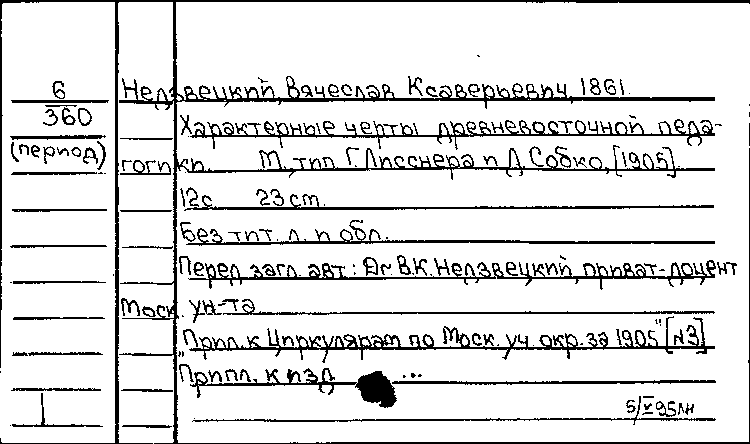 6
360
(период)
Недзвецкий, Вячеслав Ксаверьевич, 1861
Характерные черты древневосточной педа-
гогики. М., тип Г. Лисснера и Д. Собко, [1905].
12с 23 cm.
Без тит. л. и обл.
Перед загл. авт.: Dr В.К. Недзвецкий, приват-доцент
Моск. ун-та
"Прил. к Циркулярам по Моск. уч. окр. за 1905" [N3]
Прилл. к изд ...
5/V 95